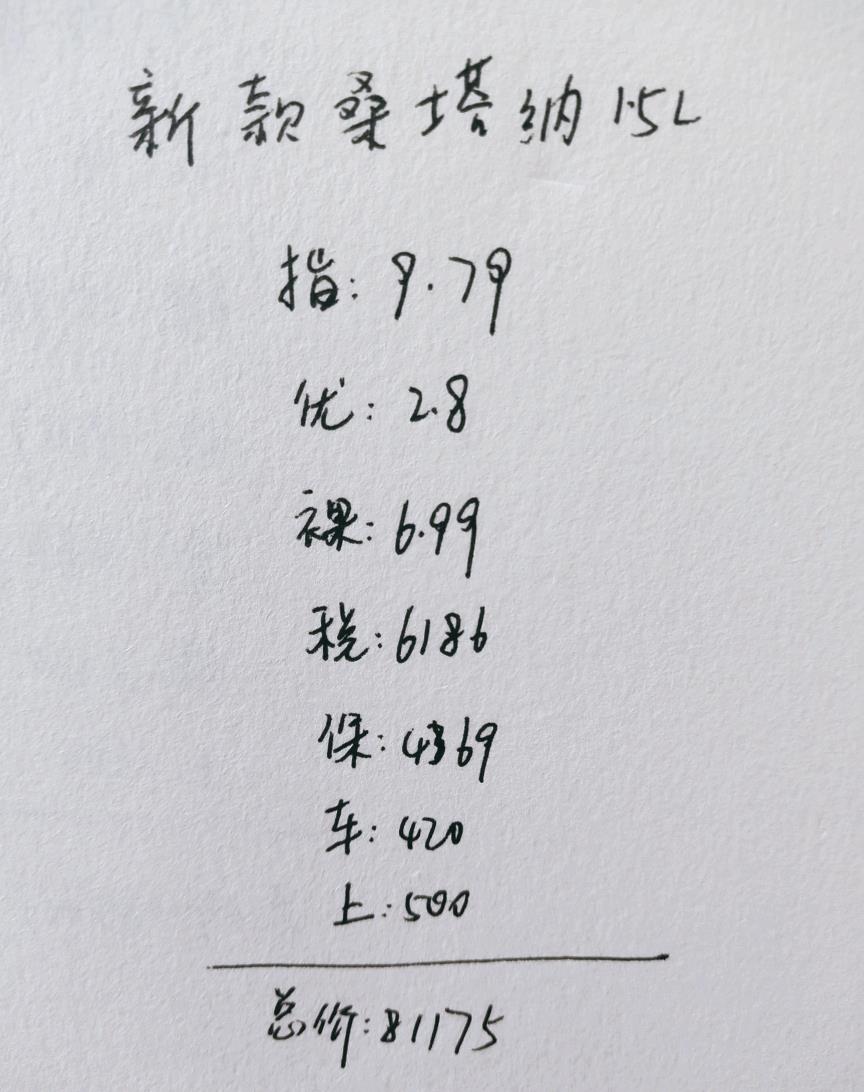 新款桑塔纳1.5L
指: 9.79
优: 2.8
裸: 6.99
税: 6186
保: 4369
车: 420
上: 500
总价: 81175